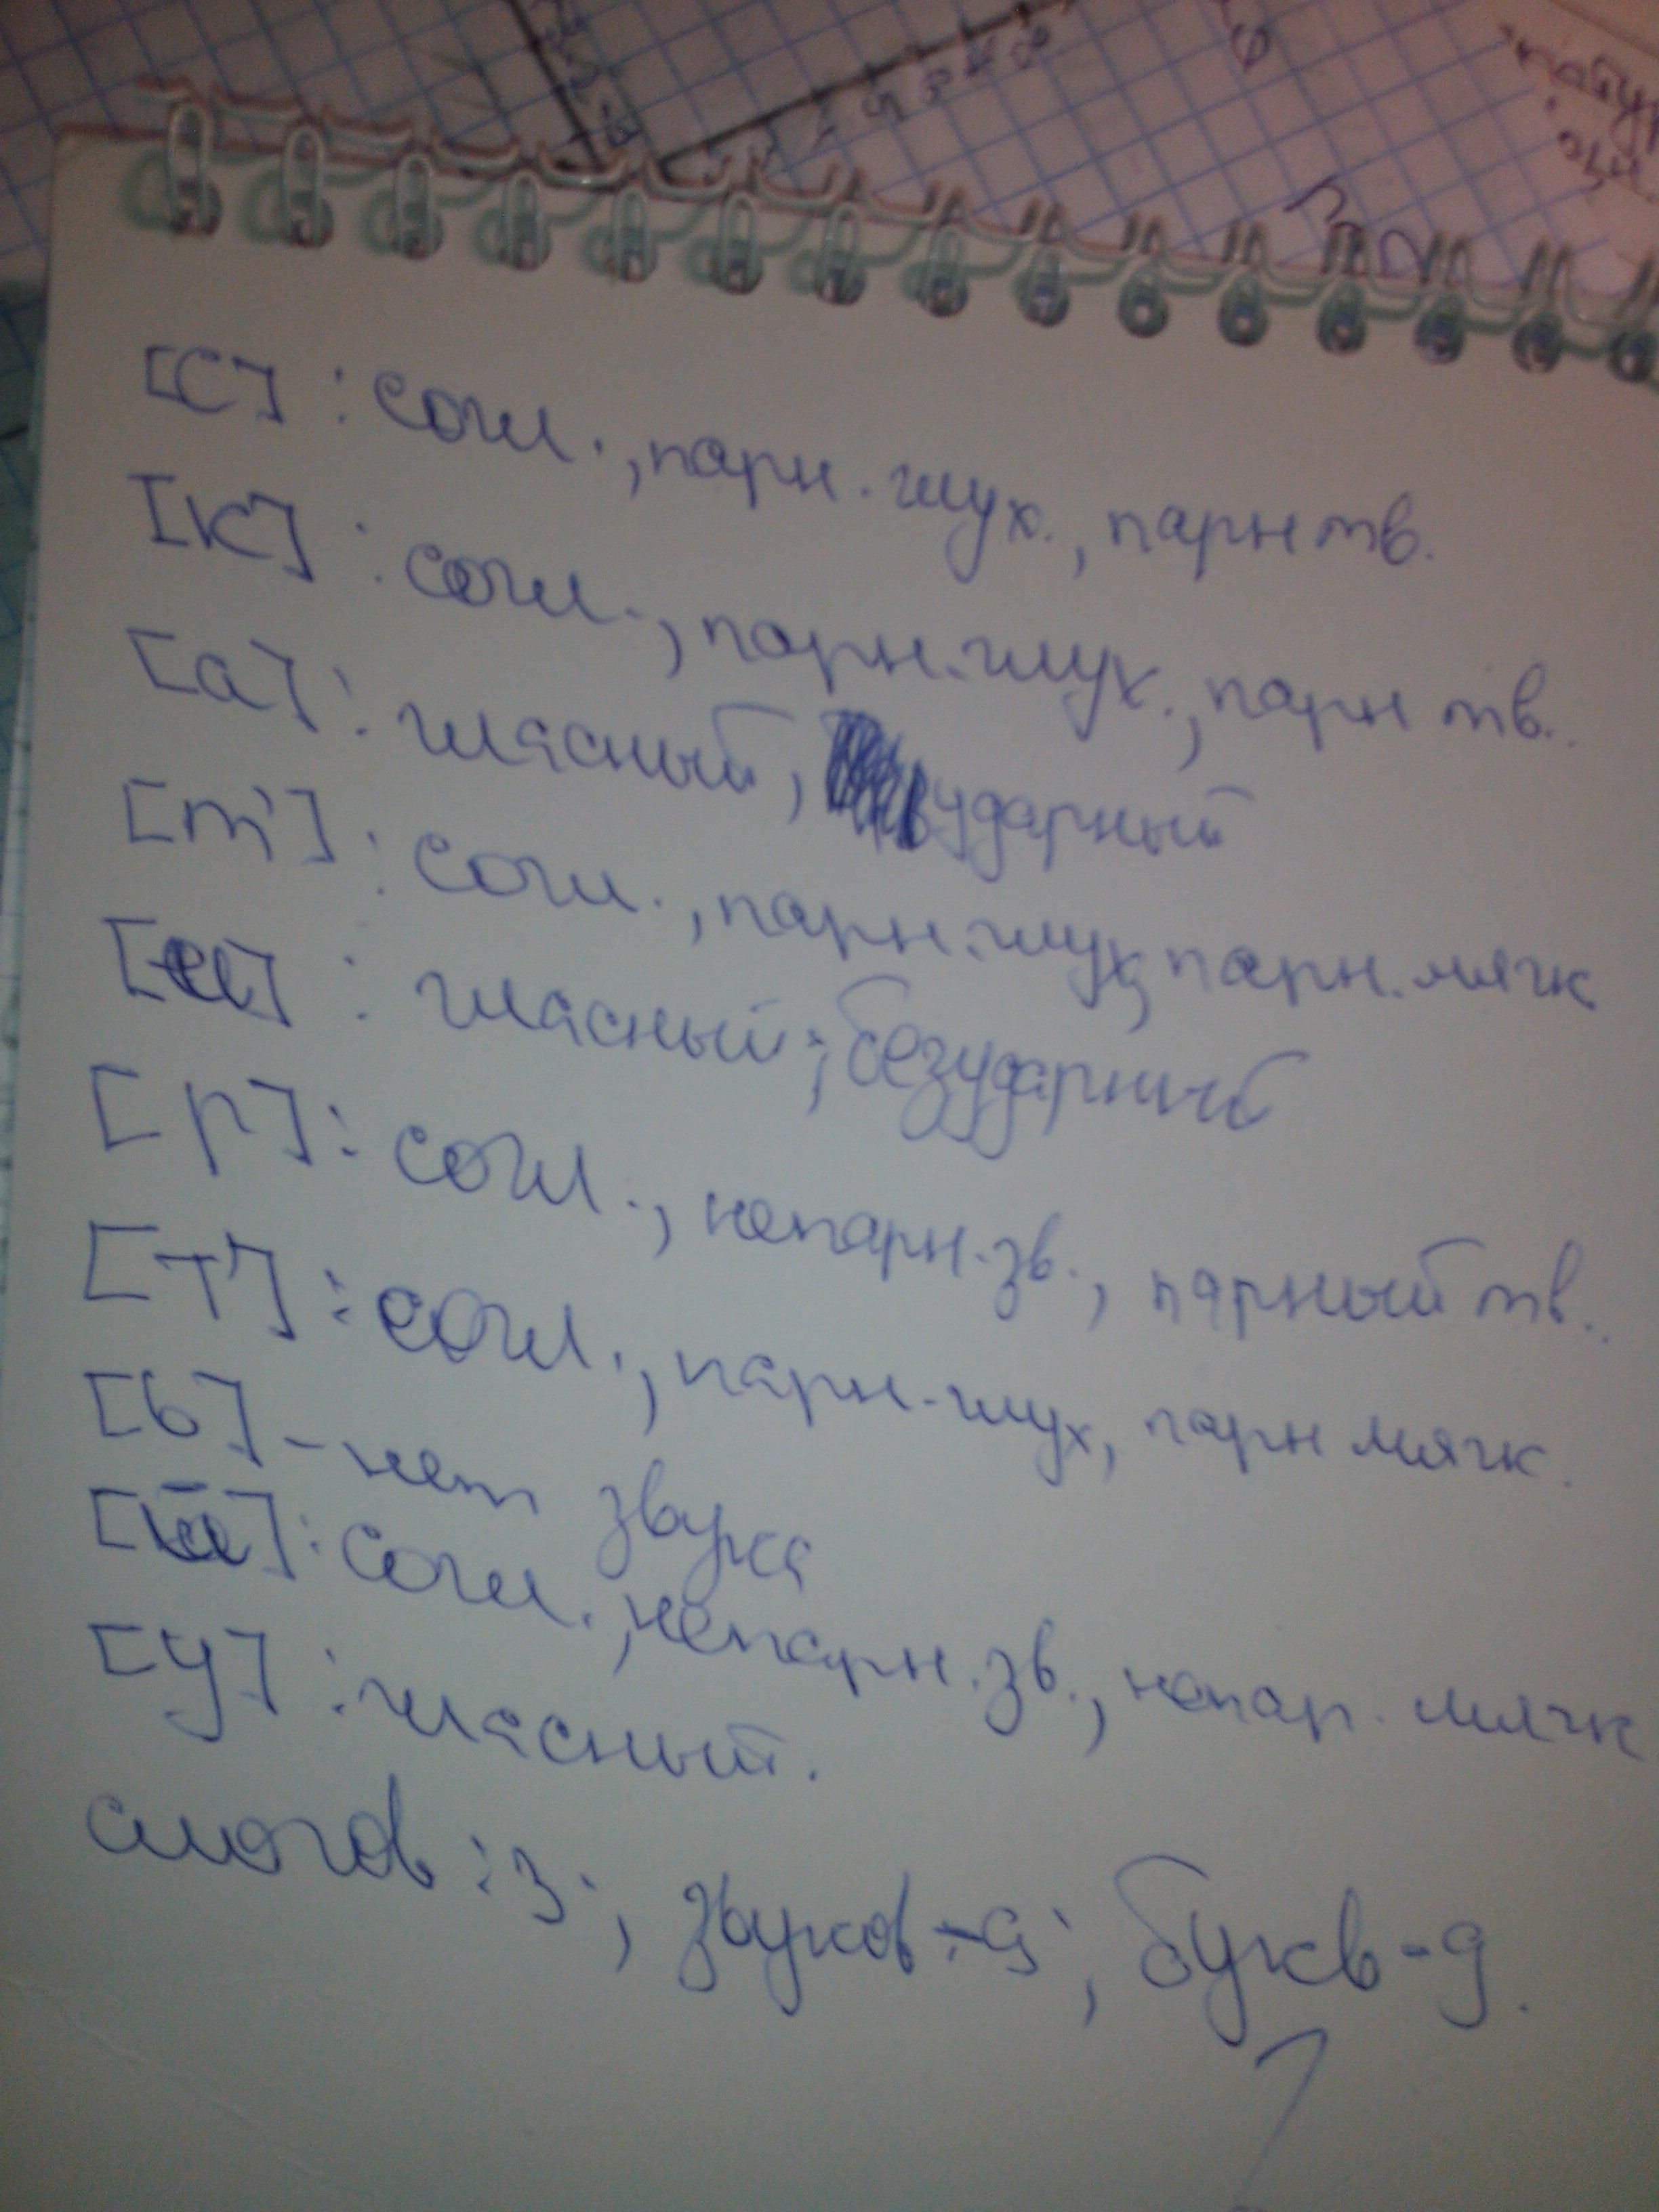 [С] : согл., парн. глух., парн тв.
[к] : согл., парн. глух., парн тв.
[а] : гласный, ударный
[т'] : согл., парн. глух, парн. мягк
[и] : гласный, безударный
[р] : согл., непарн. зв., парный тв.
[т'] : согл., парн. глух, парн мягк.
[ь] – нет звука
[й] : согл., непарн. зв., непар. мягк
[у] : гласный.
слогов : 3 ; звуков - 9 ; букв - 9.